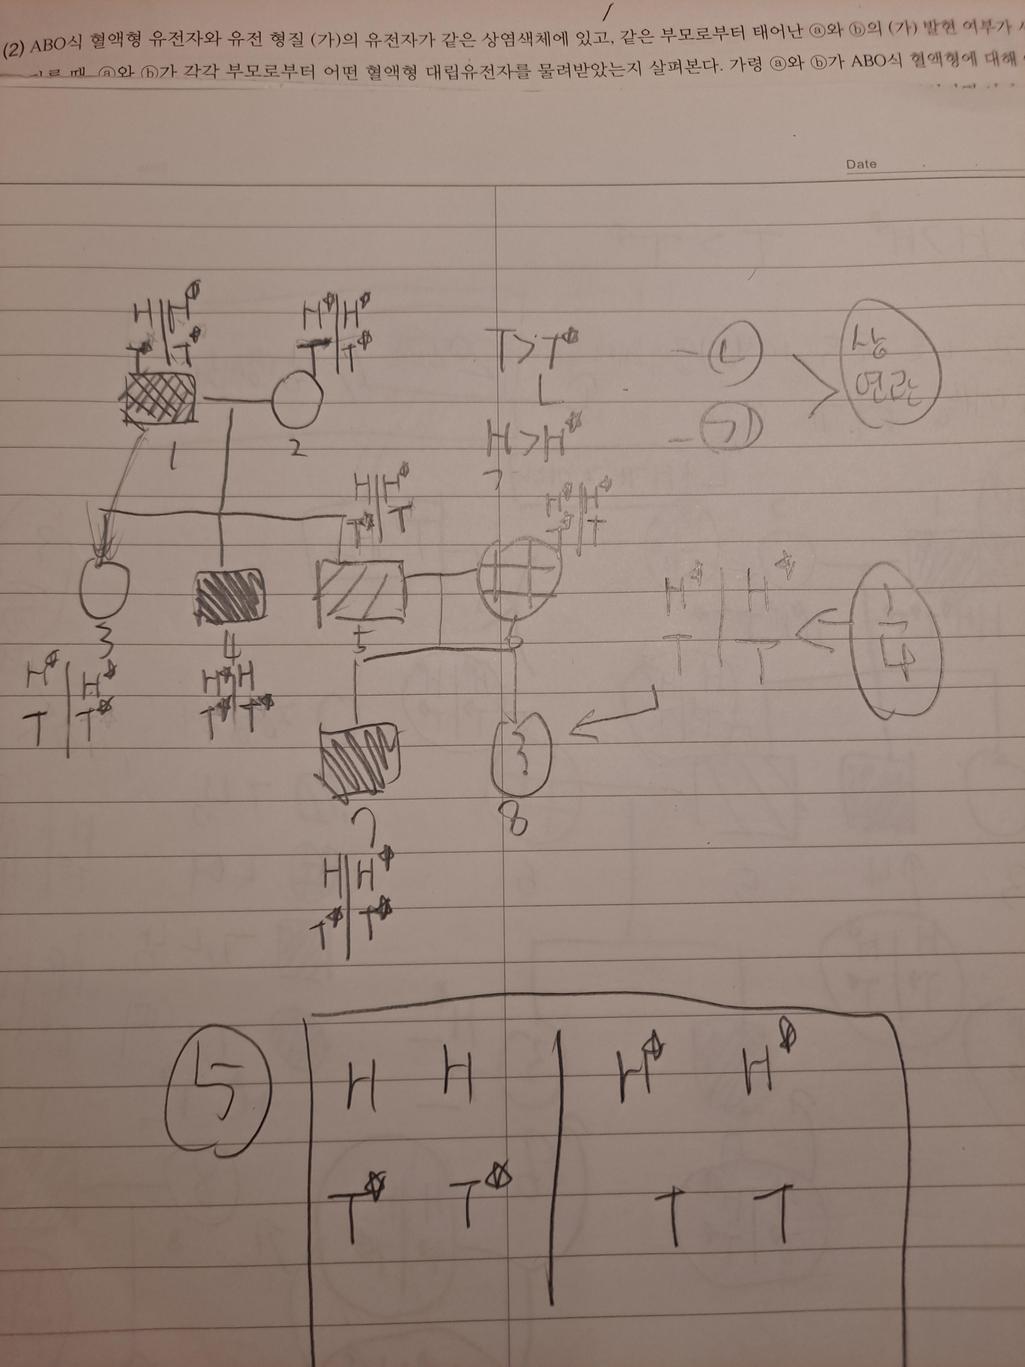 (2) ABO식 혈액형 유전자와 유전 형질 (가)의 유전자가 같은 상염색체에 있고, 같은 부모로부터 태어난 ⓐ와 ⓑ의 (가) 발현 여부가
때, ⓐ와 ⓑ가 각각 부모로부터 어떤 혈액형 대립유전자를 물려받았는지 살펴본다. 가령 ⓐ와 ⓑ가 ABO식 혈액형에 대해
Date
H | H*
T* | T*
1
H* | H*
T | T*
2
T > T* - ㄴ
ㄴ
H > H* - ㄱ
ㄱ
상
연관
H | H*
T* | T
5
H* | H*
T* | T
6
3
H* | H*
T | T*
4
H* | H
T* | T*
H* | H*
T | T
1/4
7
H | H*
T* | T*
?
8
5
H H | H* H*
T* T* | T T